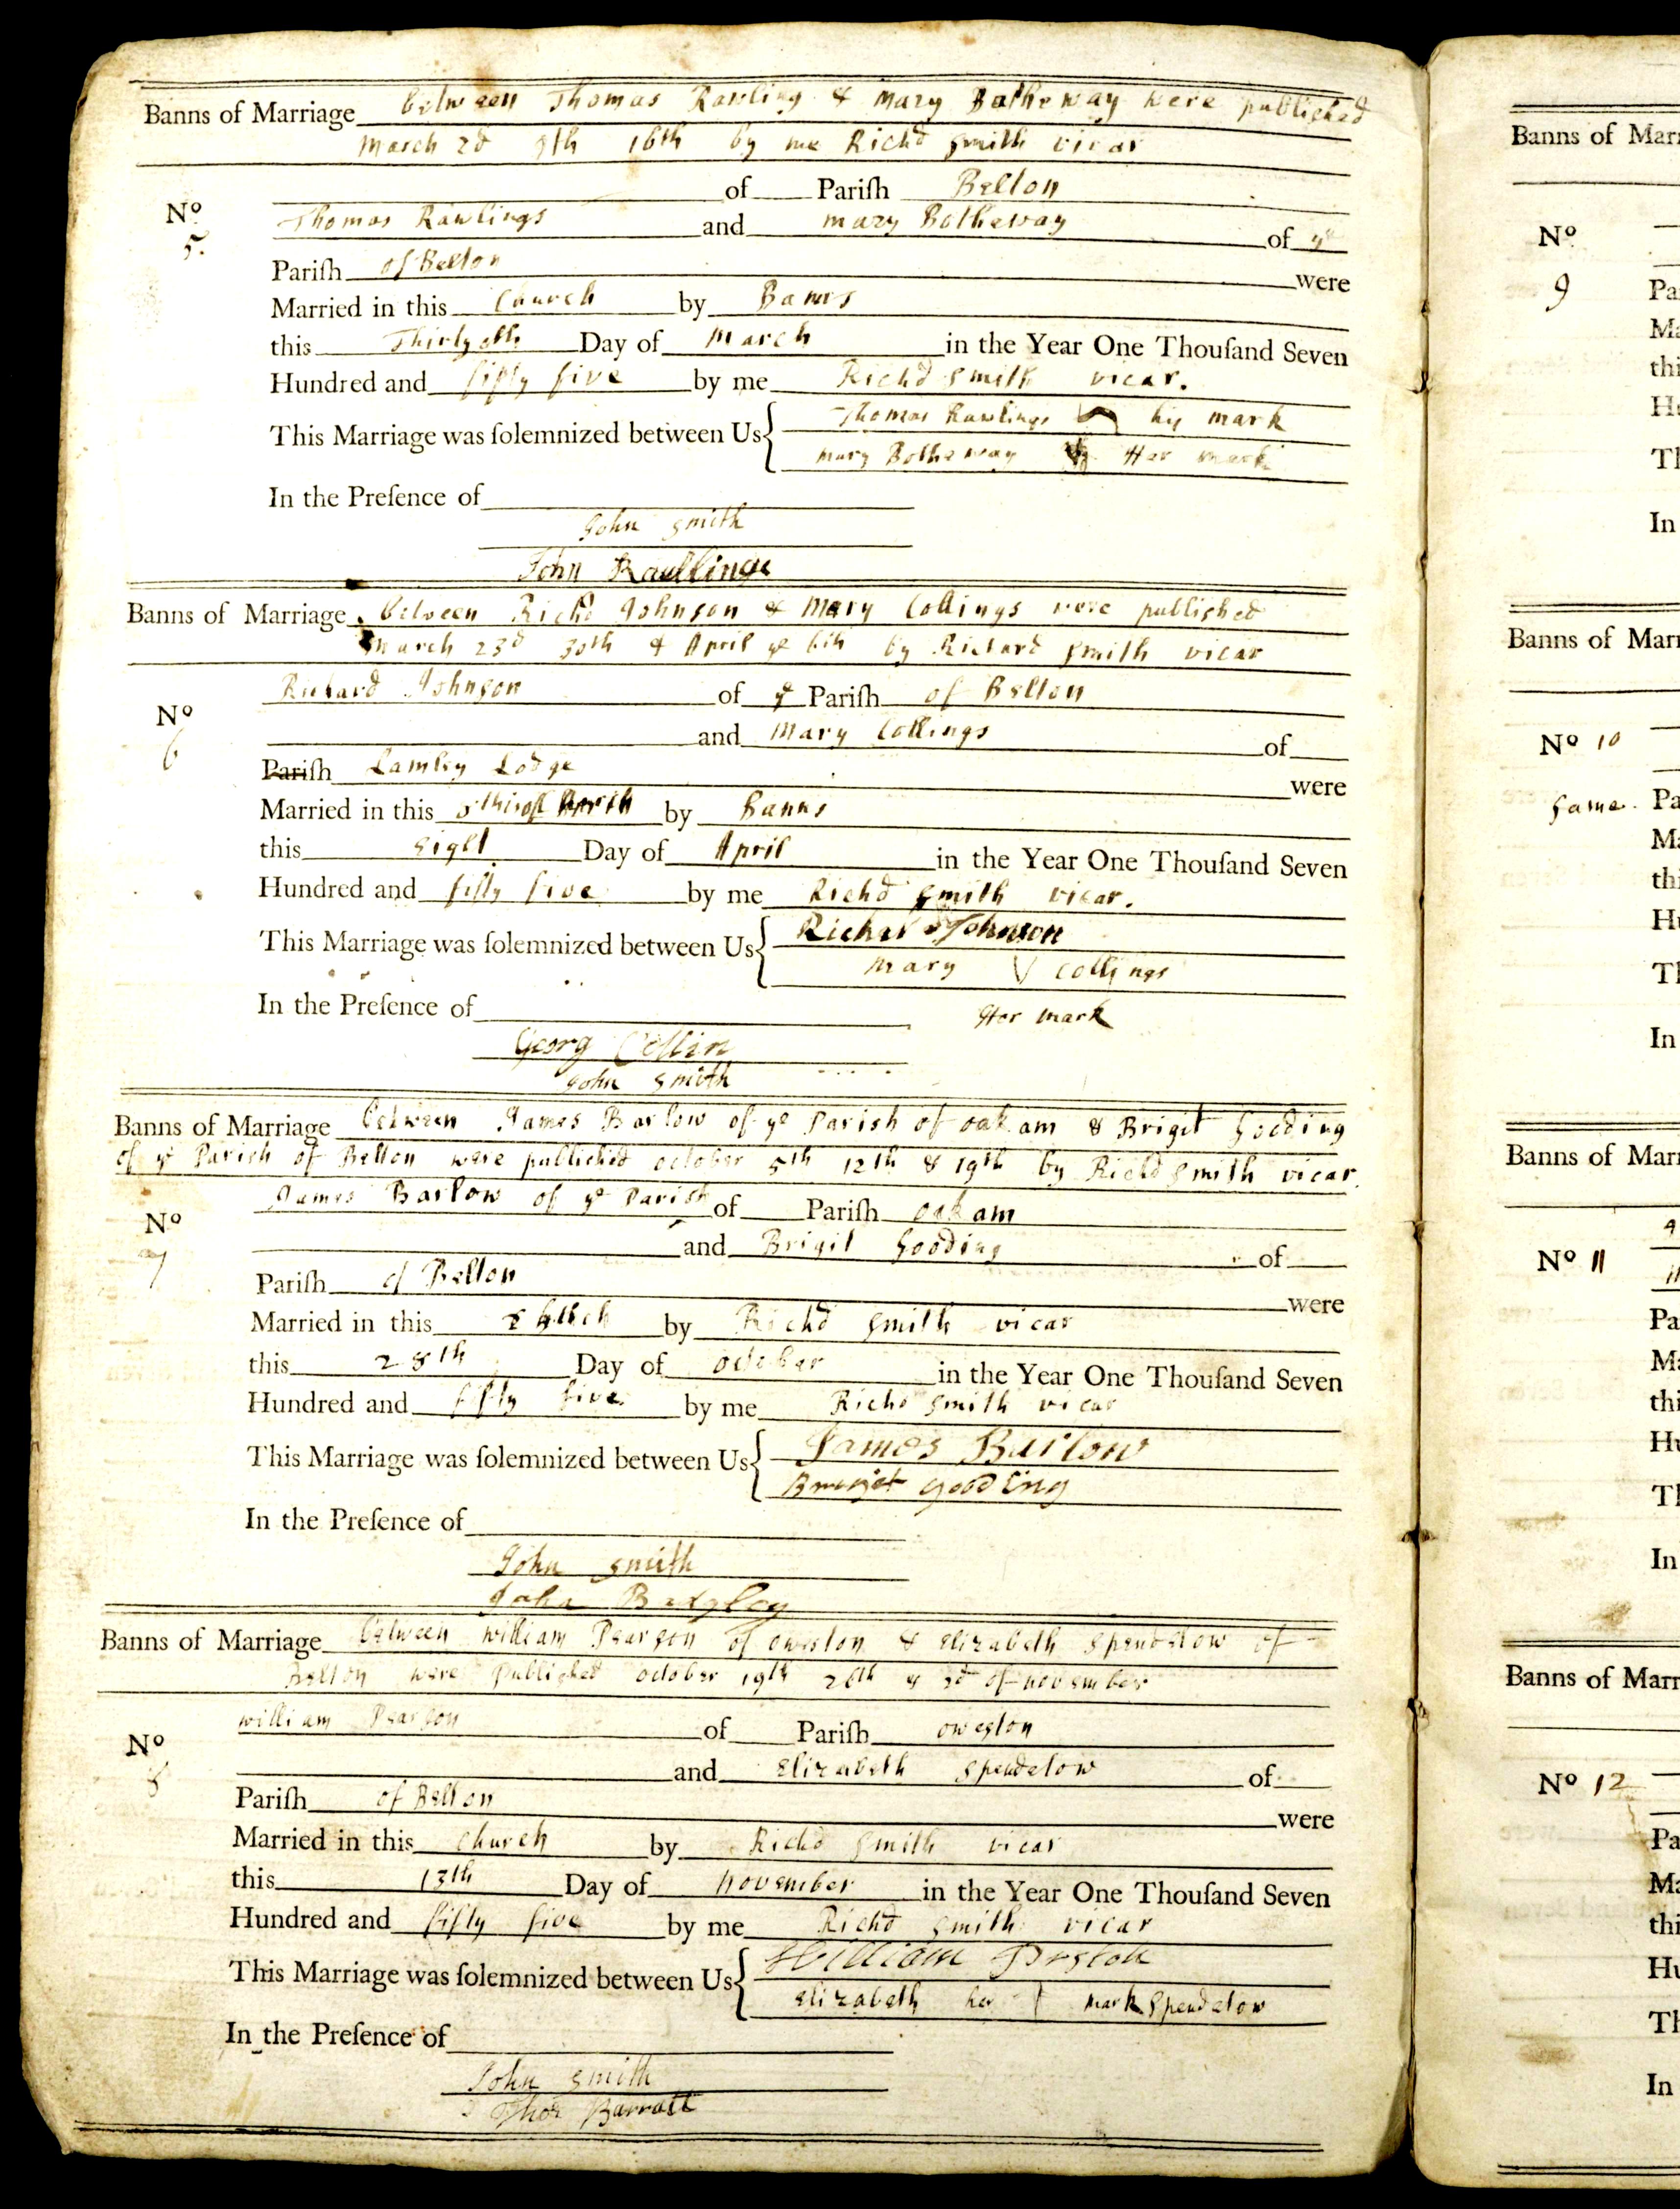 Banns of Marriage between Thomas Rawling & Mary Botheway were published
March 2d 9th 16th by me Richd Smith vicar
of Pariſh Belton
No 5. Thomas Rawlings and mary Botheway of ye
Pariſh of Belton were
Married in this Church by Banns
this Day of March in the Year One Thouſand Seven
Hundred and fifty five by me Richd Smith vicar.
This Marriage was ſolemnized between Us Thomas Rawlings his mark
mary Botheway Her mark
In the Preſence of
John Smith
John
Banns of Marriage between Richd Johnson & Mary Collings were published
March 23d 30th & April ye 6th by Richard Smith vicar
Richard Johnson of ye Pariſh of Belton
No 6 and Mary Collings of
Pariſh Lamley Lodge were
Married in this by Banns
this Eight Day of April in the Year One Thouſand Seven
Hundred and fifty five by me Richd Smith vicar.
This Marriage was ſolemnized between Us Richard Johnson
Mary Collings
In the Preſence of Her mark
Georg Collin
John Smith
Banns of Marriage between James Barlow of ye Parish of oakam & Brigit Gooding
of ye Parish of Belton were published october 5th 12th & 19th by Richd Smith vicar.
James Barlow of ye Parish of Pariſh oakam
No 7 and Brigit Gooding of
Pariſh of Belton were
Married in this by Richd Smith vicar
this 28th Day of october in the Year One Thouſand Seven
Hundred and fifty five by me Richd Smith vicar
This Marriage was ſolemnized between Us James Barlow
gooding
In the Preſence of
John Smith
John
Banns of Marriage between william Pearson of oweston & Elizabeth Spendelow of
Belton were Published october 19th 26th & 2d of november
william Pearson of Pariſh oweston
No 8 and Elizabeth Spendelow of
Pariſh of Belton were
Married in this church by Richd Smith vicar
this 13th Day of november in the Year One Thouſand Seven
Hundred and fifty five by me Richd Smith vicar
This Marriage was ſolemnized between Us William
Elizabeth her mark Spendelow
In the Preſence of
John Smith
Thos Barratt
Banns of Marr
No 9
Pa
Ma
thi
H
Th
In
Banns of Marr
No 10
Same Pa
Ma
thi
Hu
Th
In
Banns of Marr
No 11
Pa
Ma
thi
Hu
Th
In
Banns of Marr
No 12
Pa
Ma
thi
Hu
Th
In